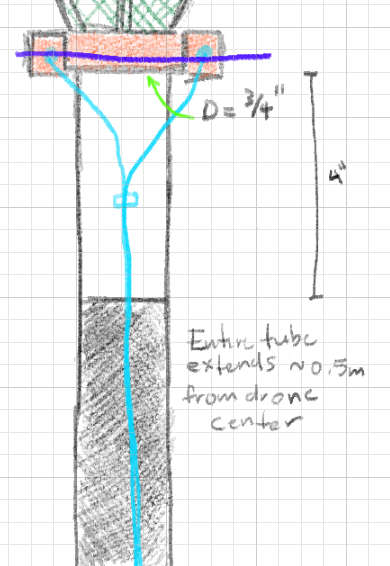 D = 3/4"
4"
Entire tube
extends ~0.5m
from drone
center